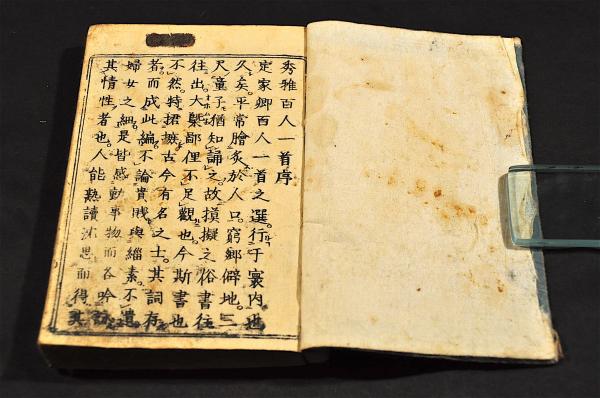 秀雅百人一首序
定家卿百人一首之選行于寰内也
久矣平常膾炙於人口窮鄉僻地二
尺童子猶知誦之故摸擬之俗書往
往出大槩鄙俚不足觀也今斯書也
不然特捃摭古今有名之士其詞存
者而成此編不論貴賤與緇素不遺
婦女之細是皆感動事物而各吟
其情性者也人能熟讀沈思而得其